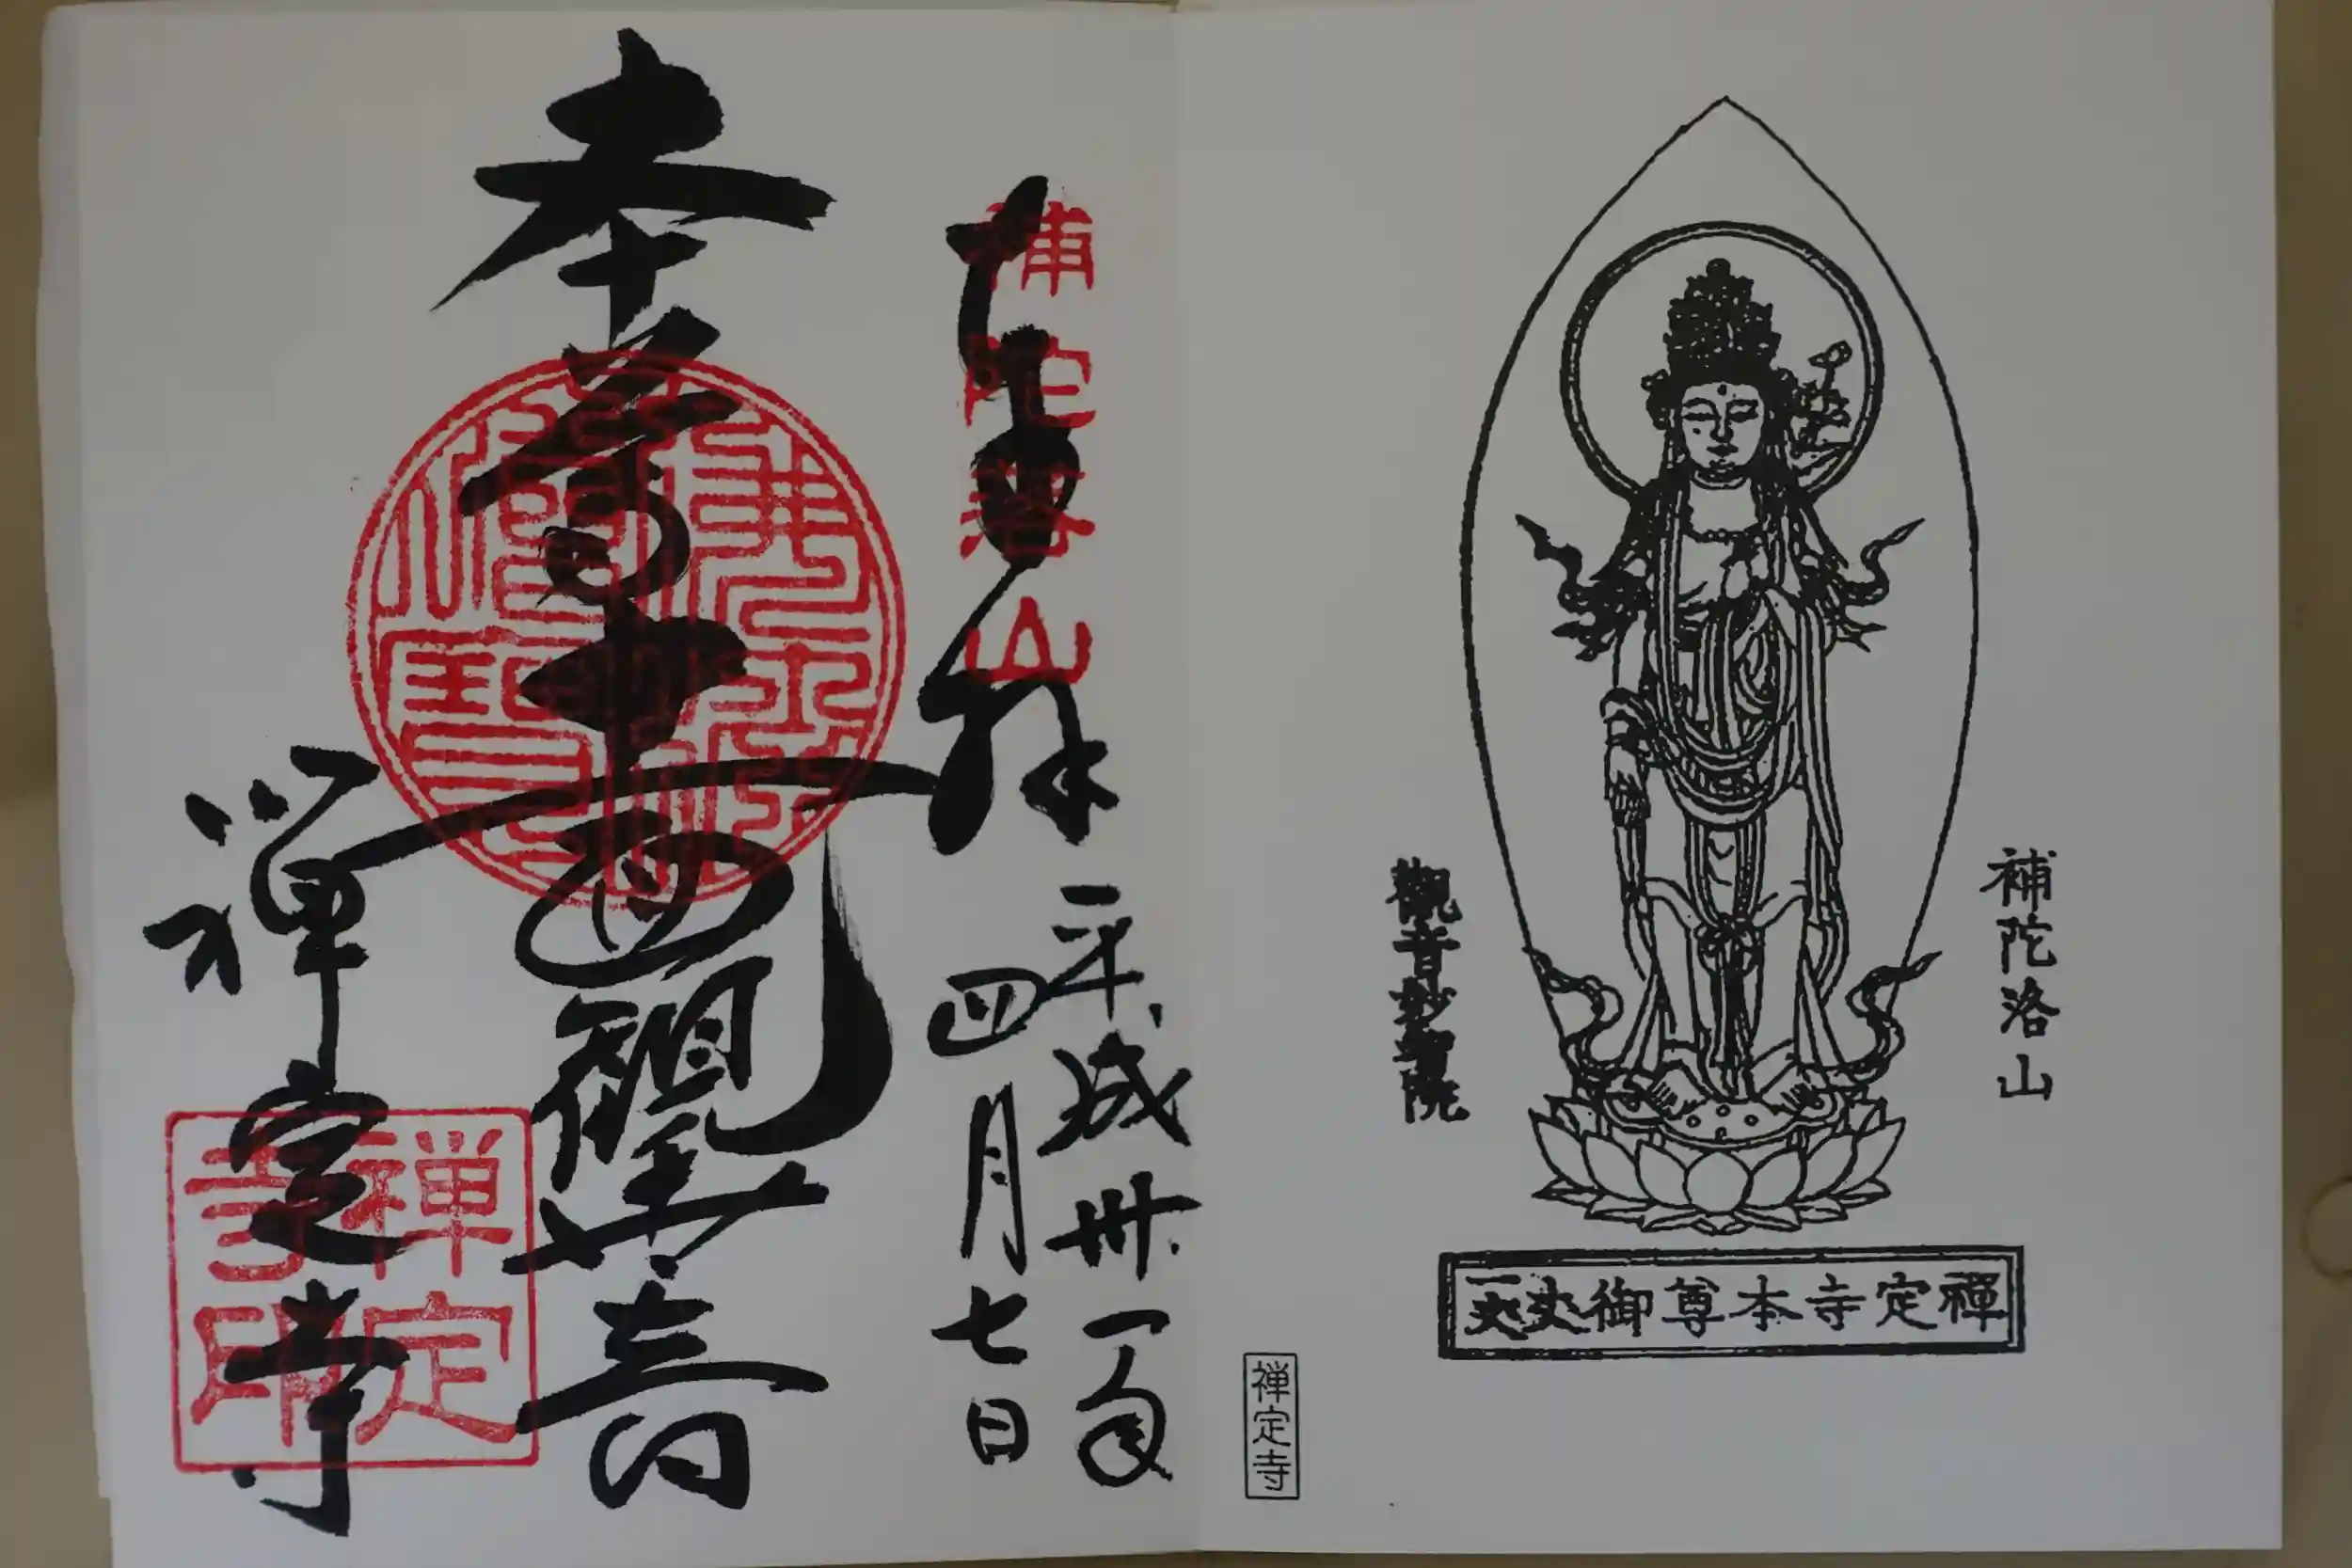 補陀洛山
觀音妙智院
禪定寺本尊御丈一丈
禅定寺
奉拝
補陀落山
平成卅一年
四月七日
本尊十一面観世音
禅定寺
禅定寺印